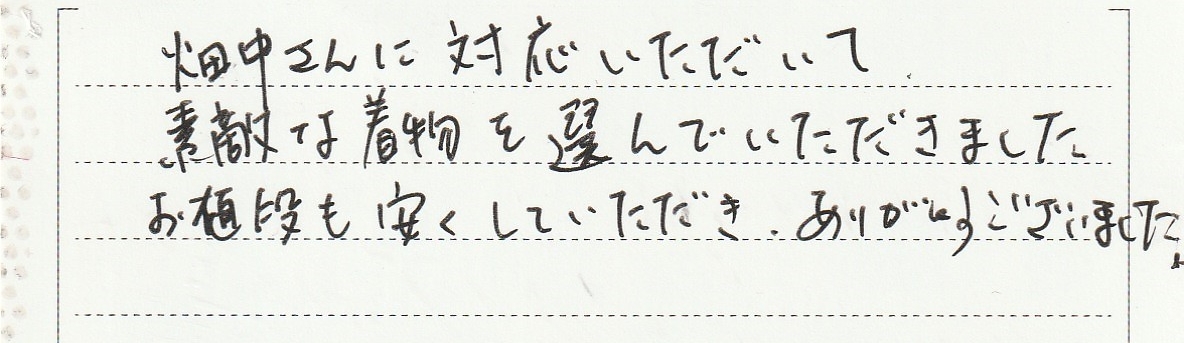 畑中さんに対応いただいて
素敵な着物を選んでいただきました
お値段も安くしていただき、ありがとうございました。